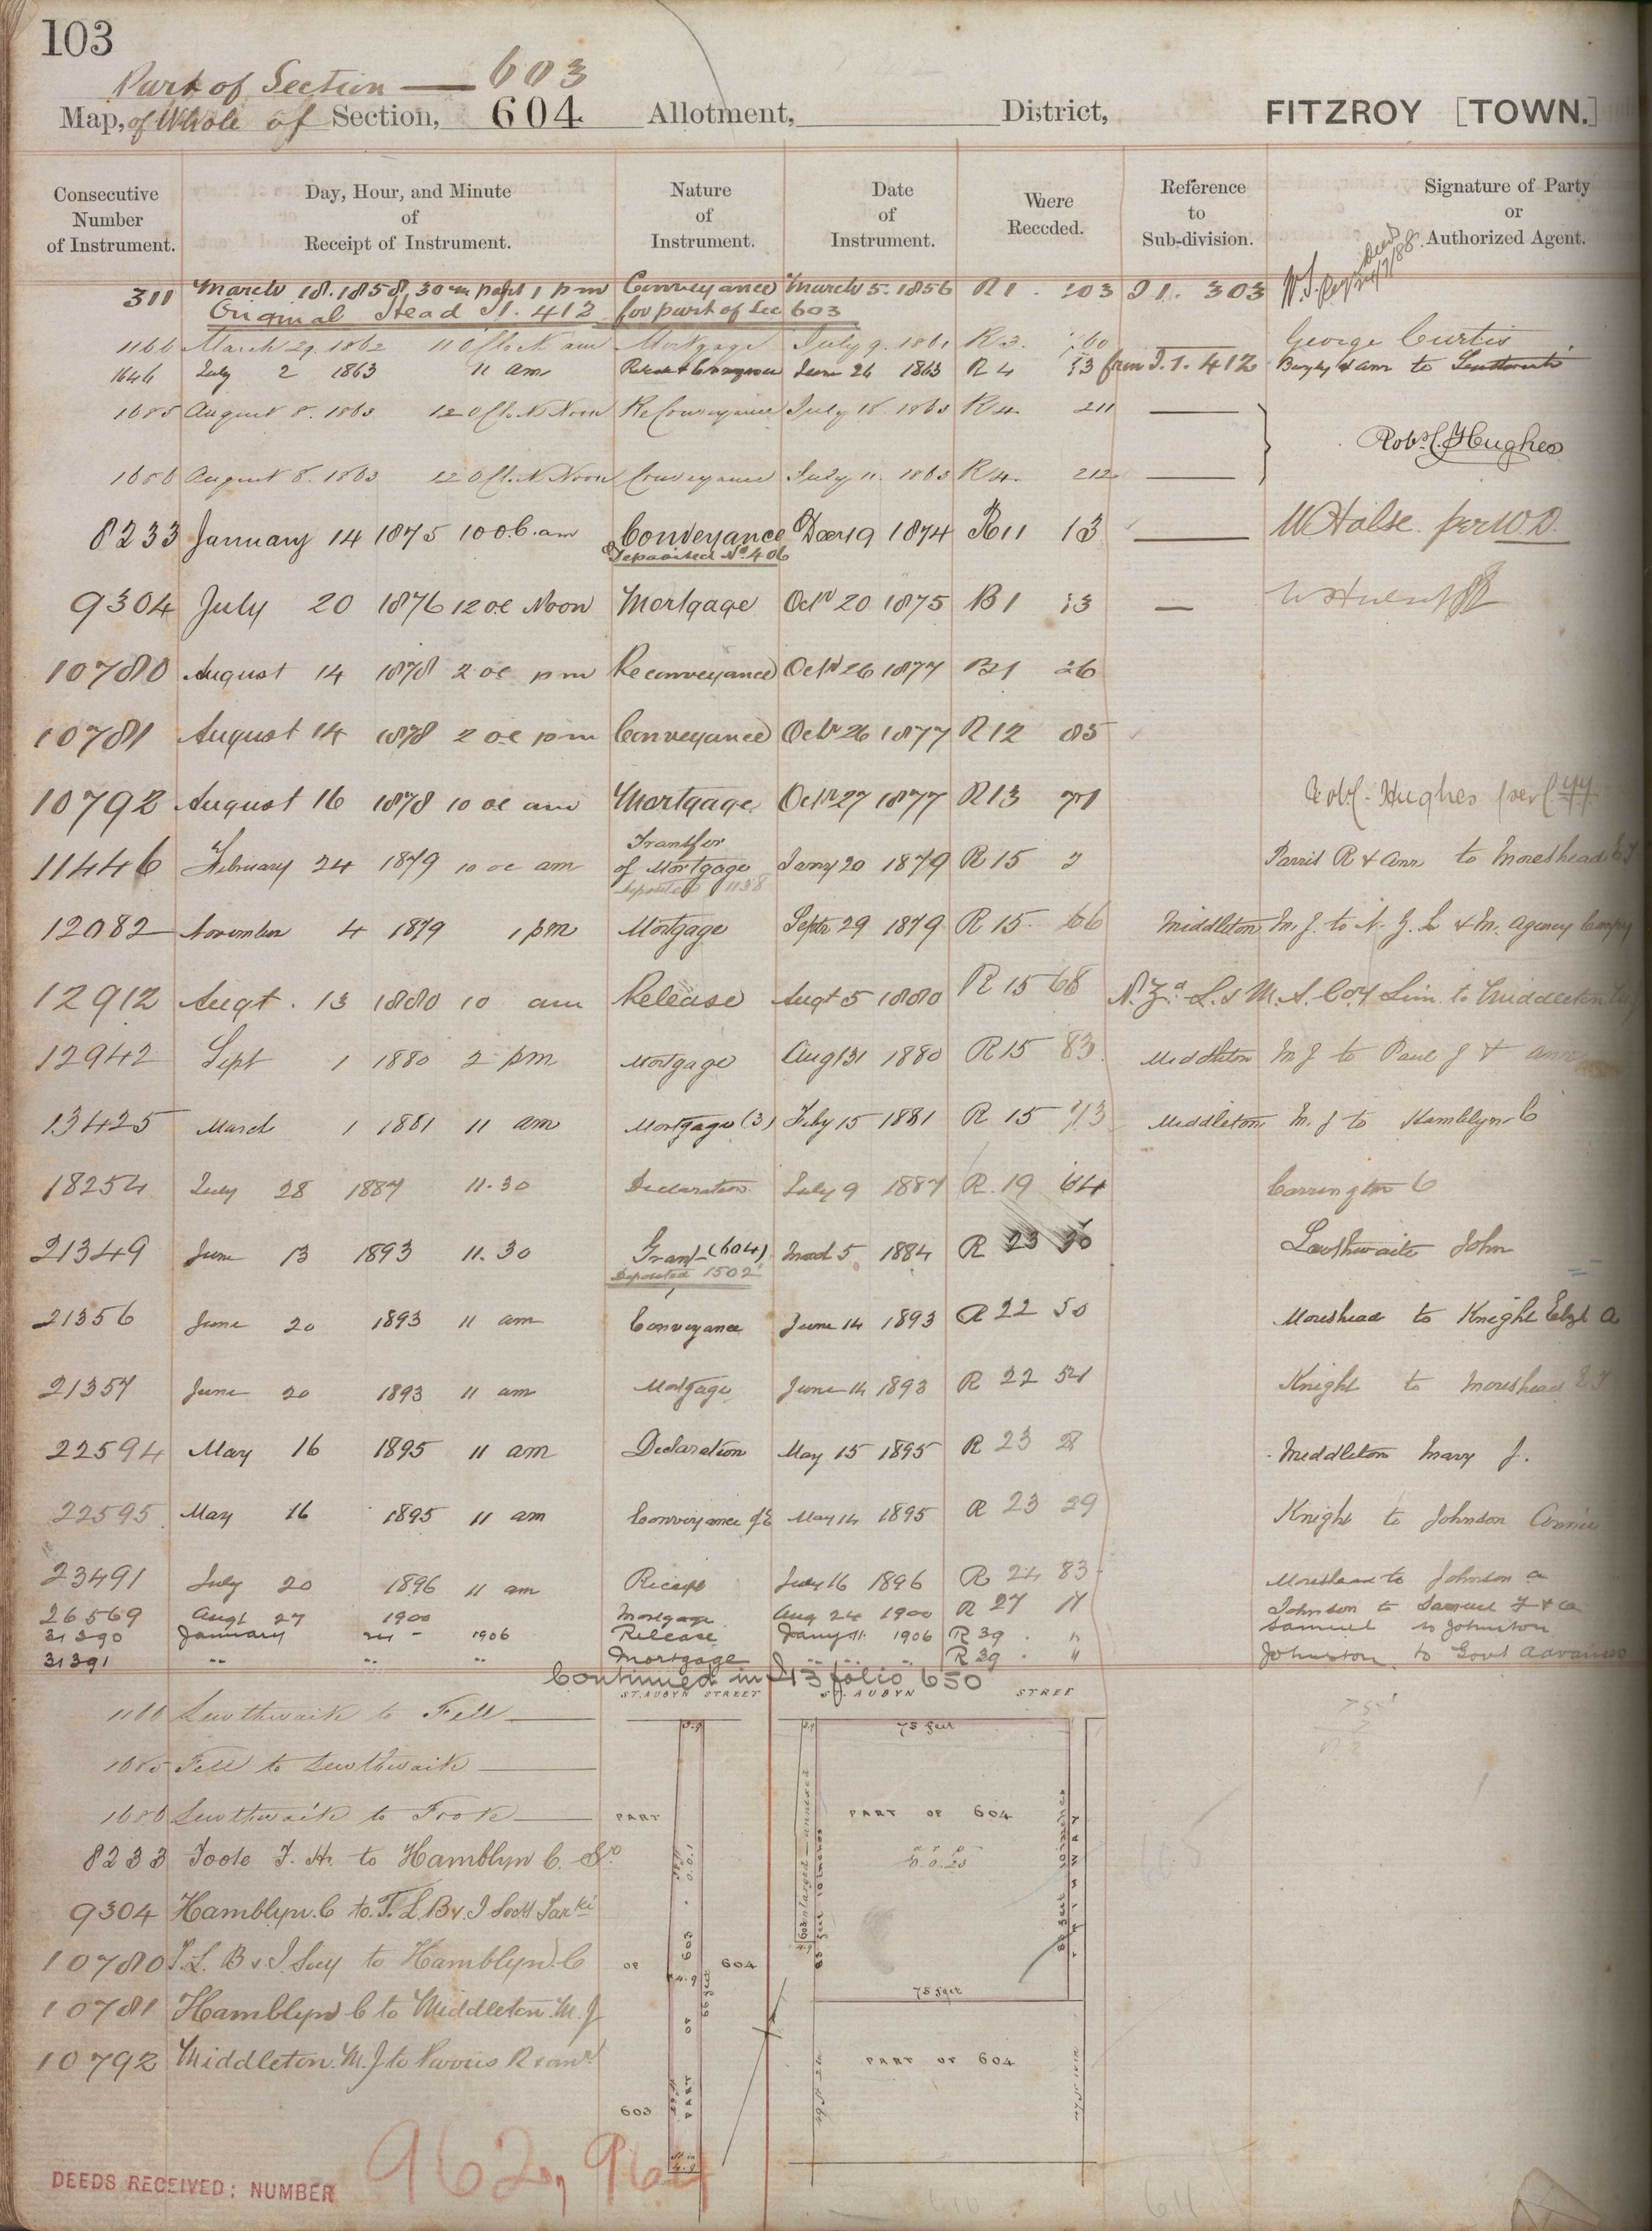 103
Part of Section — 603
Map, of Whole of Section, 604 Allotment, District, FITZROY [TOWN.]
Consecutive Number of Instrument.
Day, Hour, and Minute of Receipt of Instrument.
Nature of Instrument.
Date of Instrument.
Where Recorded.
Reference to Sub-division.
Signature of Party or Authorized Agent.
311 March 18. 1858, 30 m past 1 pm Conveyance March 5. 1856 R 1. 103 I 1. 303
Original Head I 1. 412 for part of Sec 603
1166 March 29. 1862 11 O'Clock am Mortgage July 9. 1861 R 3. 60 George Curtis
1646 July 2 1863 11 am June 26 1863 R 4 13 from I. 1. 412 Bayly & anr to
1685 August 8. 1863 12 O'Cl. N. Noon ReConveyance July 18. 1863 R 4. 211 —
Robt. Hughes
1686 August 8. 1863 12 O'Cl. N. Noon Conveyance July 11. 1863 R 4. 212 —
8233 January 14 1875 10 O.C. am Conveyance Decr 19 1874 R 11 13 — W Halse. per W.D.
Deposited No 406
9304 July 20 1876 12 oc Noon Mortgage Octr 20 1875 B 1 13 —
10780 August 14 1878 2 oc pm Reconveyance Octr 26 1877 B 1 26
10781 August 14 1878 2 oc pm Conveyance Octr 26 1877 R 12 85
10792 August 16 1878 10 oc am Mortgage Octr 27 1877 R 13 71 Robt. Hughes per
11446 February 24 1879 10 oc am Transfer of Mortgage Jany 20 1879 R 15 2 Parris R & Anr to Moreshead E J
Deposited 1138
12082 November 4 1879 1 pm Mortgage Septr 29 1879 R 15. 66 Middleton M. J. to N. Z. L & M. Agency Compy
12912 Augt. 13 1880 10 am Release Augt 5 1880 R 15 68 N. Zd. L. & M. A. Coy Lim. to Middleton
12942 Sept 1 1880 2 pm Mortgage Aug 31 1880 R 15 83 Middleton M J to Paul J & anr
13425 March 1 1881 11 am Mortgage (3) Feby 15 1881 R 15 73 Middleton M. J to Hamblyn C
18254 July 28 1887 11.30 Declaration July 9 1887 R. 19 64 Carrington C
21349 June 13 1893 11.30 Grant (604) 5 1884 R 23 Lewthwaite John
Deposited 1502
21356 June 20 1893 11 am Conveyance June 14 1893 R 22 50 Moreshead to Knight Elizt A
21357 June 20 1893 11 am Mortgage June 14 1893 R 22 51 Knight to Moreshead E J
22594 May 16 1895 11 am Declaration May 15 1895 R 23 28 Middleton Mary J.
22595 May 16 1895 11 am Conveyance of E May 14 1895 R 23 29 Knight to Johnson Annie
23491 July 20 1896 11 am Receipt July 16 1896 R 24 83 Moreshead to Johnson A
26569 Augt 27 1900 Mortgage Aug 24 1900 R 27 Johnson to Samuel F & Co
31390 January 24 - 1906 Release Jany 11 1906 R 39 . Samuel to Johnston
31391 " " " Mortgage " " " R 39 . Johnston to Govt Advances
Continued in I 13 folio 650
ST. AUBYN STREET ST. AUBYN STREE
1166 Lewthwaite to Fell —
1685 Fell to Lewthwaite —
1686 Lewthwaite to Foote —
8233 Foote F. H. to Hamblyn C. Sr
9304 Hamblyn. C to T. L. B & I Socy Tarki
10780 T. L. B & I. Socy to Hamblyn C
10781 Hamblyn C to Middleton. M. J
10792 Middleton. M. J to Parris R & anr
PART
OF
603
604
PART OF 603
4.9
66 feet
75 feet
PART OF 604
603 enlarged—annexed
83 feet 10 inches
TRAMWAY
75 feet
PART OF 604
DEEDS RECEIVED: NUMBER 962, 964